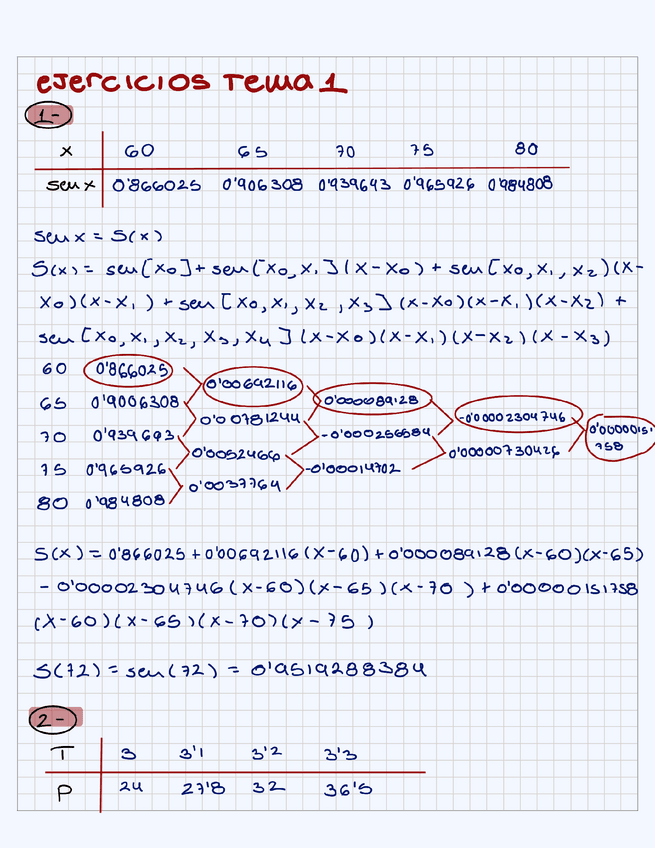 ejercicios Tema 1
1-
x 60 65 70 75 80
sen x 0'866025 0'906308 0'939643 0'965926 0'984808
sen x = S(x)
S(x) = sen[x0] + sen[x0, x1](x-x0) + sen[x0, x1, x2)(x-
x0)(x-x1) + sen[x0, x1, x2, x3](x-x0)(x-x1)(x-x2) +
sen[x0, x1, x2, x3, x4](x-x0)(x-x1)(x-x2)(x-x3)
60 0'866025
0'00692116
65 0'9006308 0'000089128
0'00781244 -0'00002304746
70 0'939693 -0'000256584 0'00000151758
0'0052466 0'00000730426
75 0'965926 -0'00014702
0'0037764
80 0'984808
S(x) = 0'866025 + 0'00692116(x-60) + 0'000089128(x-60)(x-65)
- 0'00002304746(x-60)(x-65)(x-70) + 0'00000151758
(x-60)(x-65)(x-70)(x-75)
S(72) = sen(72) = 0'9519288384
2-
T 3 3'1 3'2 3'3
P 24 27'8 32 36'5